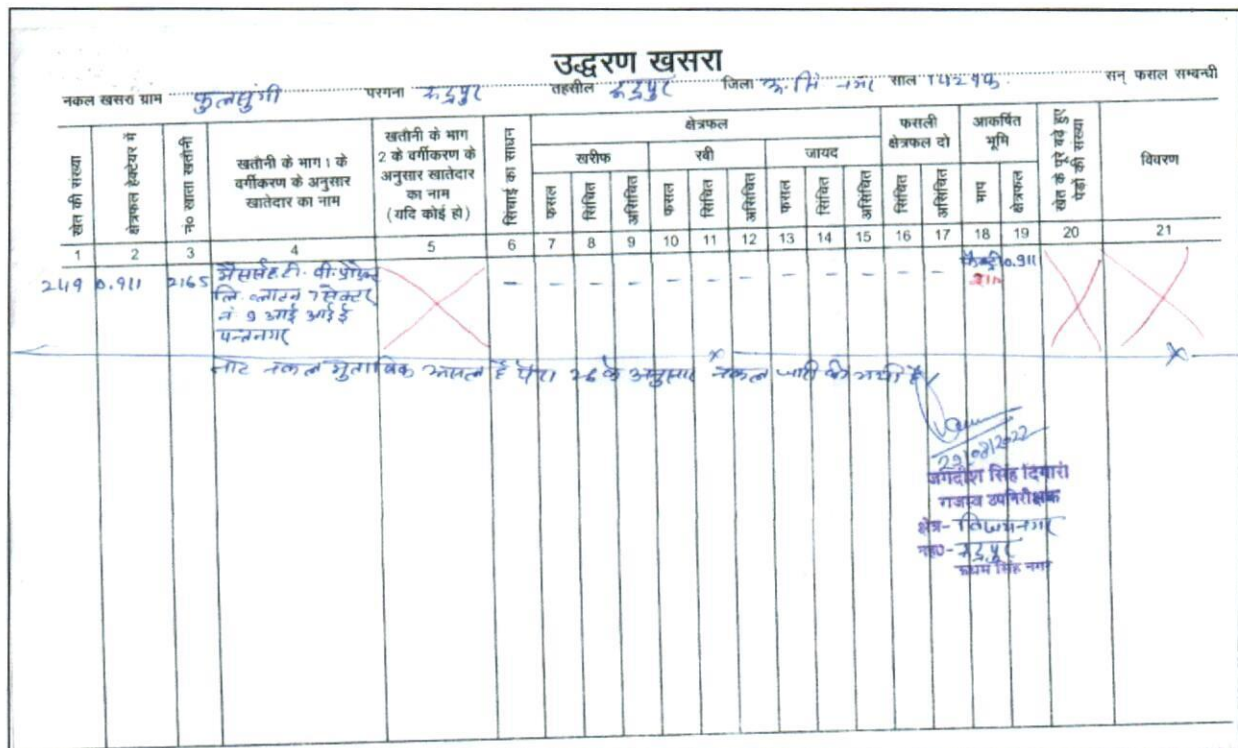 उद्धरण खसरा
नकल खसरा ग्राम फुलसुंगी परगना रूद्रपुर तहसील रूद्रपुर जिला ऊ.सिं नगर साल 1429फ. सन् फसल सम्बन्धी
खेत की संख्या
क्षेत्रफल हेक्टेयर में
नं० खाता खतौनी
खतौनी के भाग 1 के
वर्गीकरण के अनुसार
खातेदार का नाम
खतौनी के भाग
2 के वर्गीकरण के
अनुसार खातेदार
का नाम
(यदि कोई हो)
सिंचाई का साधन
क्षेत्रफल
खरीफ रबी जायद
फसल सिंचित असिंचित फसल सिंचित असिंचित फसल सिंचित असिंचित
फसली
क्षेत्रफल दो
सिंचित असिंचित
आकर्षित
भूमि
माप क्षेत्रफल
खेत के पूरे बढ़े हुए
पेड़ों की संख्या
विवरण
1 2 3 4 5 6 7 8 9 10 11 12 13 14 15 16 17 18 19 20 21
249 0.911 2165 - - - - - - - - - - - - फैक्ट्री 0.911
लि. सेक्टर
नं 9 आई आई ई
पन्तनगर
नोट नकल मुताबिक असल है पैरा 26 के अनुसार नकल जारी की गयी है।
29/08/2022
जगदीश सिंह दिगारी
राजस्व उपनिरीक्षक
क्षेत्र-
तह०- रूद्रपुर
ऊधम सिंह नगर